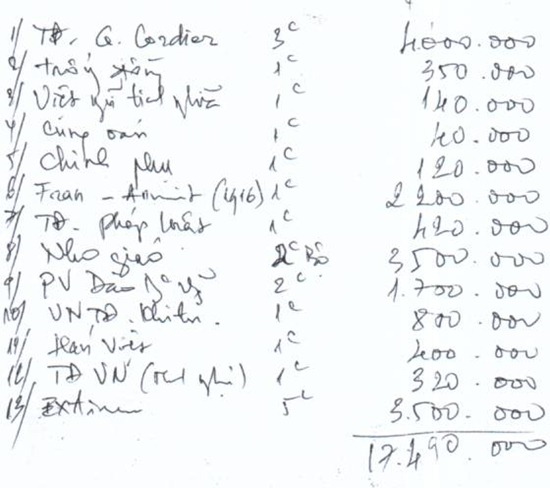 1/ TĐ. G. Cordier 3c 4.000.000
2/ trống đồng 1c 350.000
3/ Việt ngữ tinh nghĩa 1c 140.000
4/ Cung oán 1c 40.000
5/ Chinh phụ 1c 120.000
6/ Fran - Annamit (1916) 1c 2200.000
7/ TĐ. pháp luật 1c 420.000
8/ Nho giáo 2c Bộ 3500.000
9/ PV Dao 2c 1.700.000
10/ VNTĐ. Khai trí. 1c 800.000
11/ Hán Việt 1c 400.000
12/ TĐ VN (1c 320.000
13/ 5c 3.500.000
17.490.000